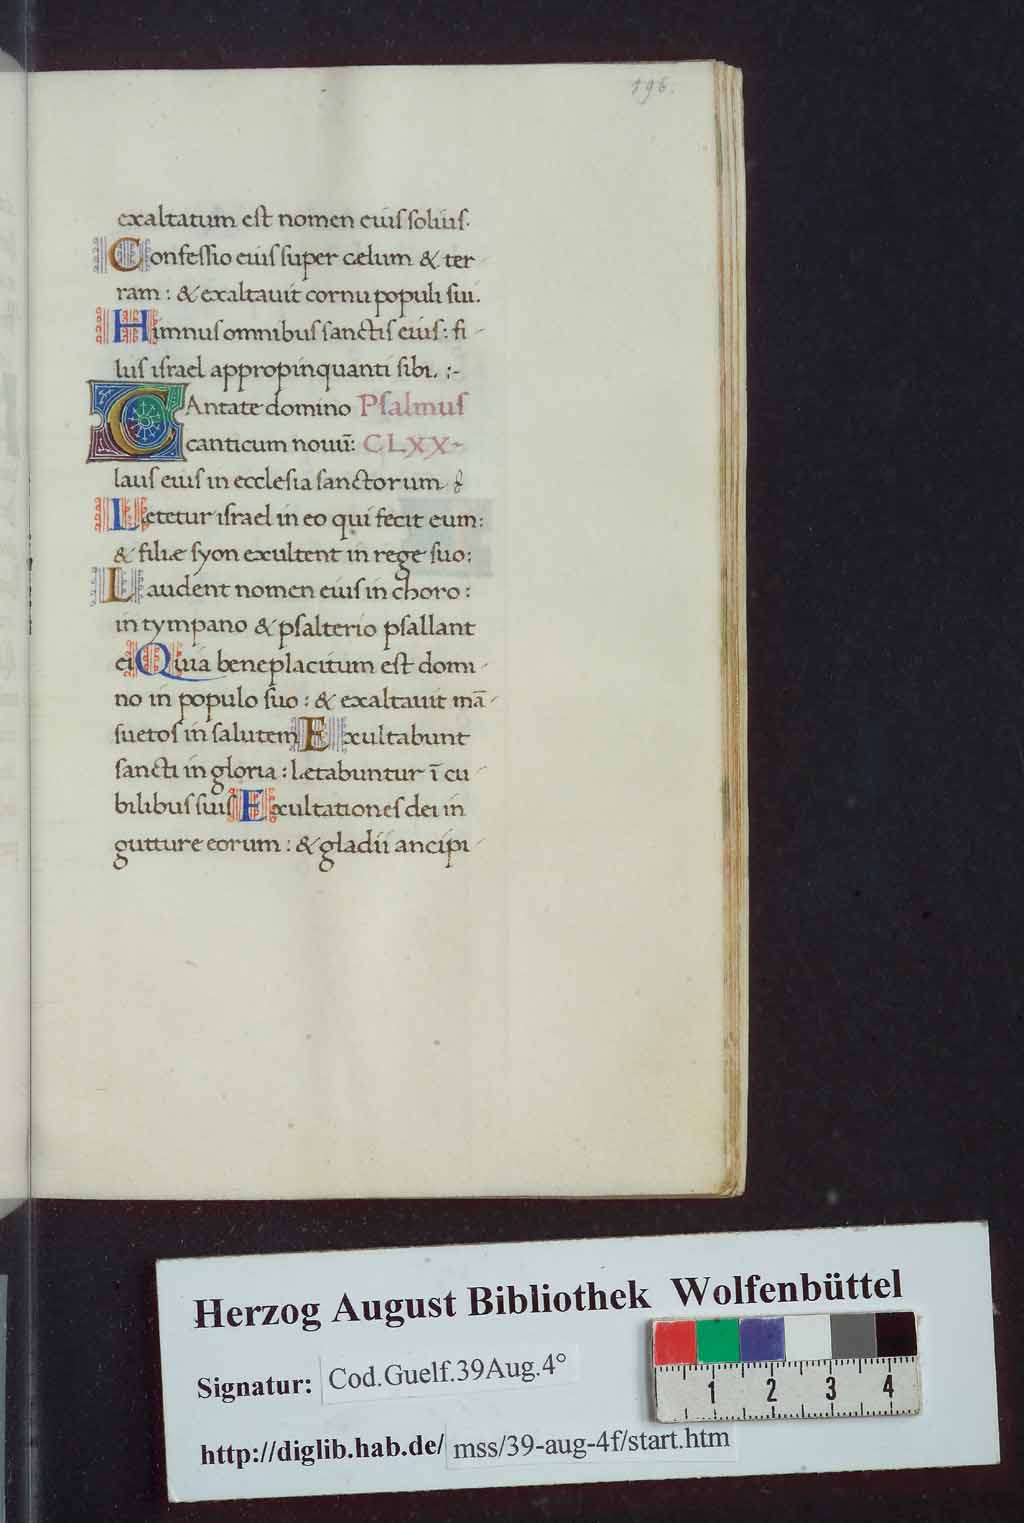 196.
exaltatum est nomen eius solius.
Confessio eius super cælum & ter-
ram: & exaltauit cornu populi sui.
Himnus omnibus sanctis eius: fi-
lius israel appropinquanti sibi. :-
CAntate domino Psalmus
canticum nouū: CLXX-
laus eius in ecclesia sanctorum
Letetur israel in eo qui fecit eum:
& filiæ syon exultent in rege suo:
Laudent nomen eius in choro:
in tympano & psalterio psallant
ei Quia beneplacitum est domi-
no in populo suo: & exaltauit mā-
suetos in salutem Exultabunt
sancti in gloria: letabuntur ī cu-
bilibus suis Exultationes dei in
gutture eorum: & gladii ancipi-
Herzog August Bibliothek Wolfenbüttel
Signatur: Cod.Guelf.39Aug.4°
http://diglib.hab.de/ mss/39-aug-4f/start.htm
1 2 3 4